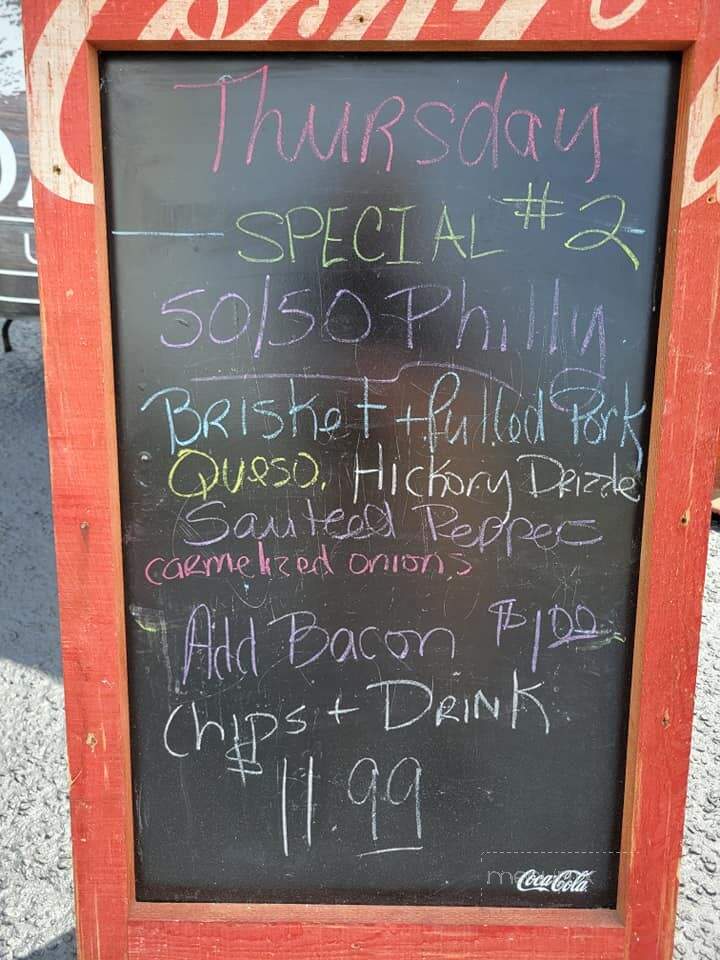 Thursday
SPECIAL #2
50/50 Philly
Brisket + Pulled Pork
Queso. Hickory Drizzle
Sauteed Pepper
carmelized onions
Add Bacon $1.00
Chips + Drink
$11.99
Coca-Cola